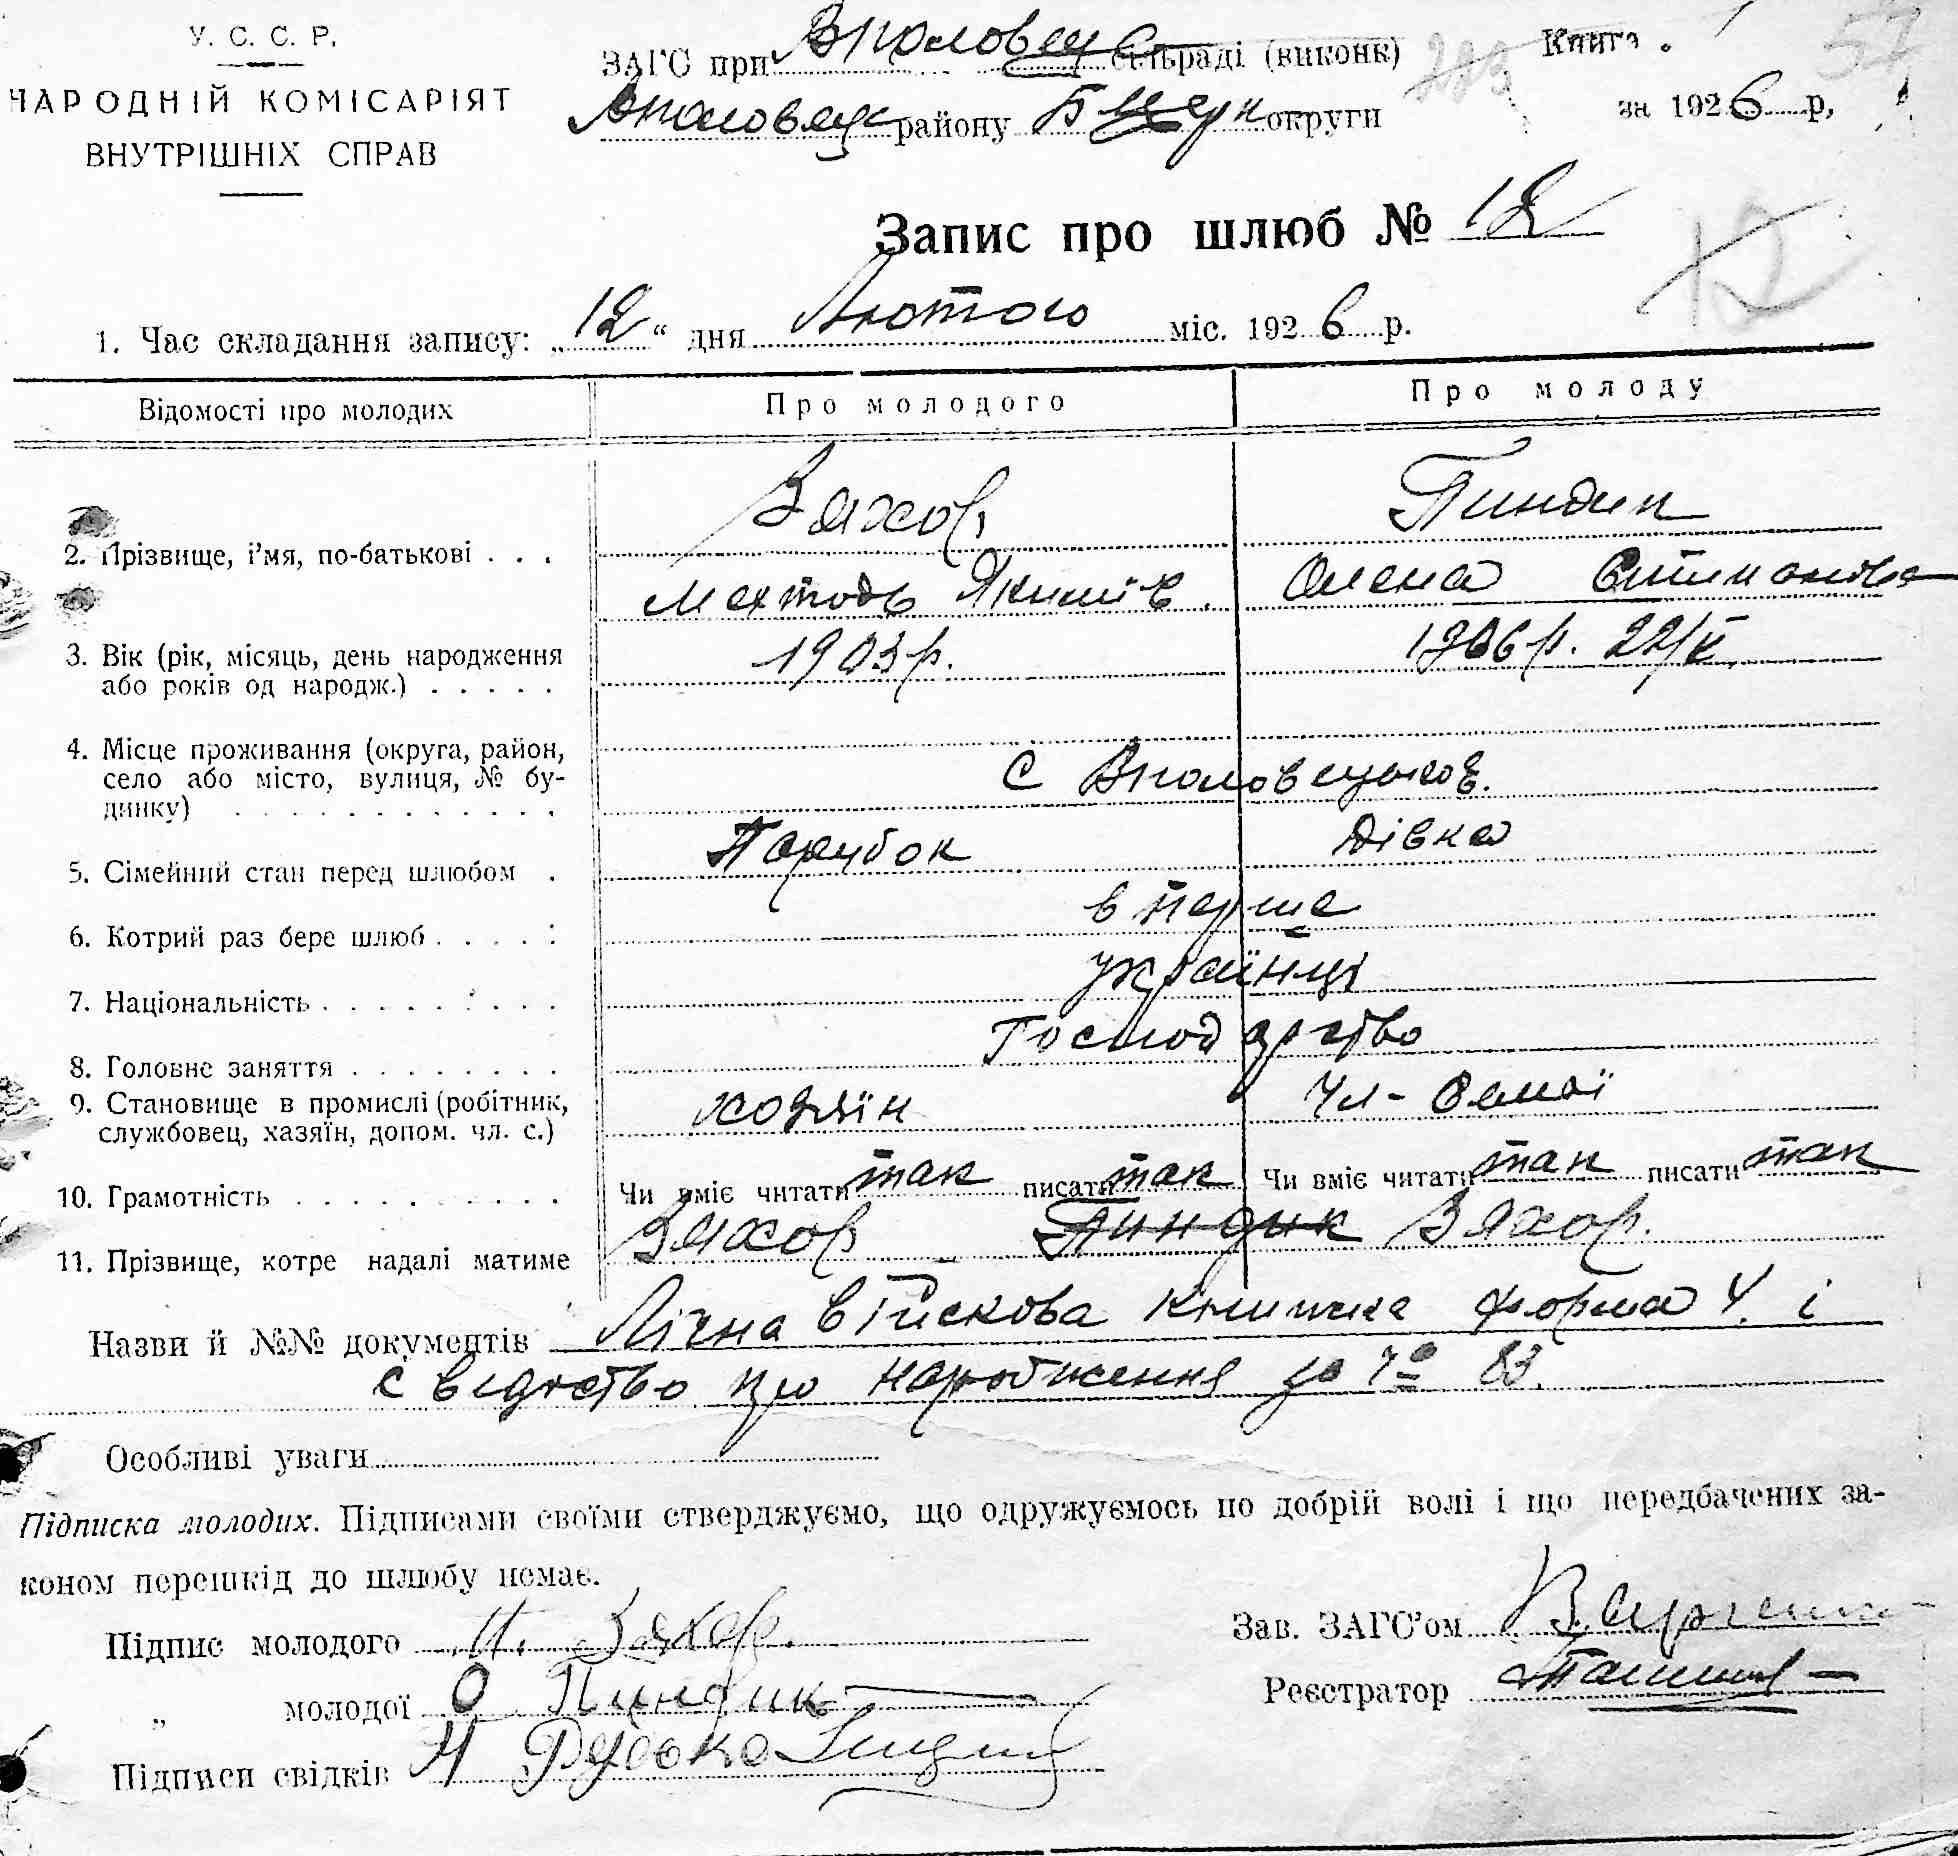 У. С. С. Р.
НАРОДНІЙ КОМІСАРІЯТ
ВНУТРІШНІХ СПРАВ
ЗАГС при Вполовецк сільраді (виконк) 283 Книга 57
Вполовецк району Б Церк округи за 1926 р,
Запис про шлюб № 12
12
1. Час складання запису: „12“ дня Лютого міс. 1926 р.
Відомості про молодих Про молодого Про молоду
Вяхор Пиндик
2. Прізвище, і'мя, по-батькові . . .
Мехтодь Якимів Олена
3. Вік (рік, місяць, день народження 1903 р. 1906 р. 22/V
або років од народж.) . . . . .
4. Місце проживання (округа, район,
село або місто, вулиця, № бу- с Вполовецьков.
динку) . . . . . . . . . . . .
5. Сімейний стан перед шлюбом . Парубок Дівка
6. Котрий раз бере шлюб . . . . . в перше
7. Національність . . . . . . . . . українці
8. Головне заняття . . . . . . . . Господарство
9. Становище в промислі (робітник, хозяїн Чл- Семї
службовец, хазяїн, допом. чл. с.)
10. Грамотність . . . . . . . . . . Чи вміє читати так писати так Чи вміє читати так писати так
11. Прізвище, котре надалі матиме Вяхор Пиндик Вяхор.
Назви й №№ документів Лічна військова книжка форма 4. і
сведоство про народження за № 83.
Особливі уваги
Підписка молодих. Підписами своїми стверджуємо, що одружуємось по добрій волі і що передбачених за-
коном перешкід до шлюбу немає.
Підпис молодого М. Вяхор. Зав. ЗАГС'ом
„ молодої О Пиндик Реєстратор
Підписи свідків